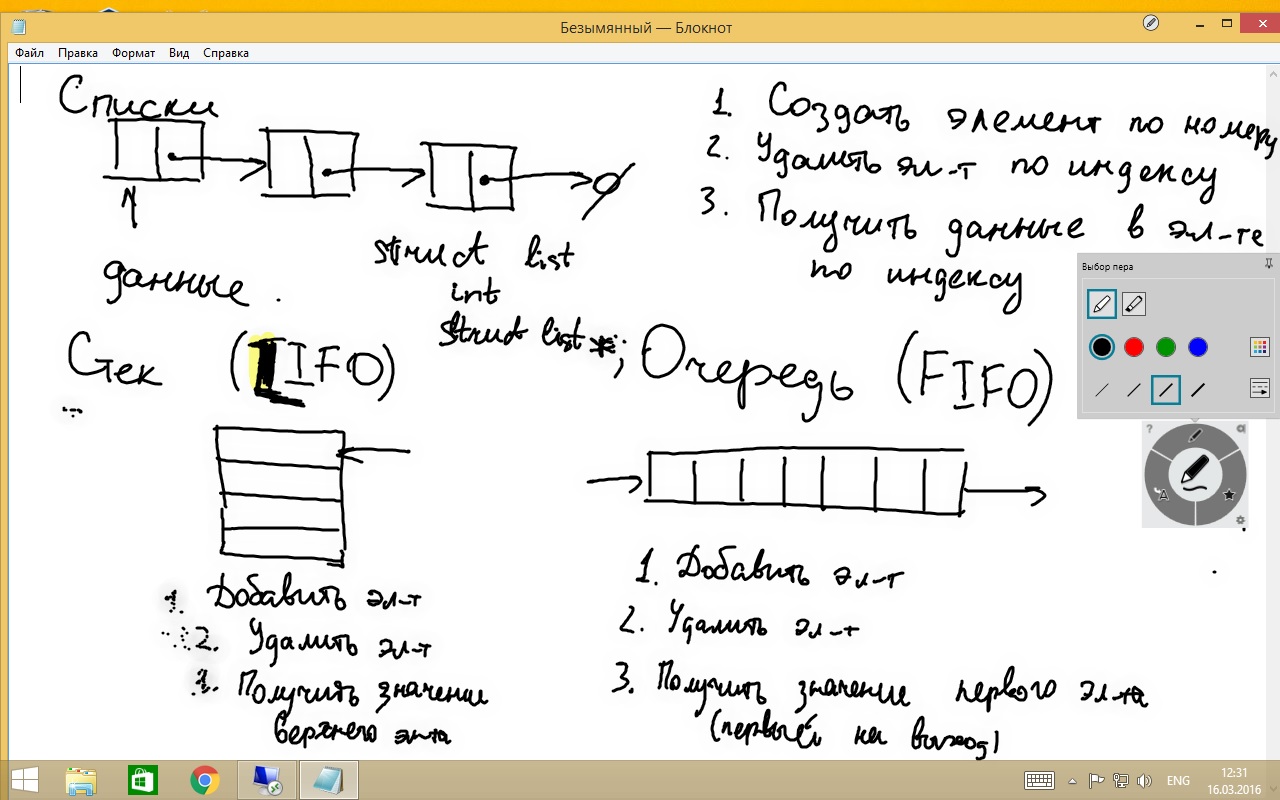 Безымянный — Блокнот
Файл Правка Формат Вид Справка
Списки
данные.
struct list
int
struct list*;
1. Создать элемент по номеру
2. Удалить эл-т по индексу
3. Получить данные в эл-те
по индексу
Выбор пера
Стек (LIFO)
1. Добавить эл-т
2. Удалить эл-т
3. Получить значении
верхнего эл-та
Очередь (FIFO)
1. Добавить эл-т
2. Удалить эл-т
3. Получить значение первого эл-та
(первый на выход)
ENG
12:31
16.03.2016